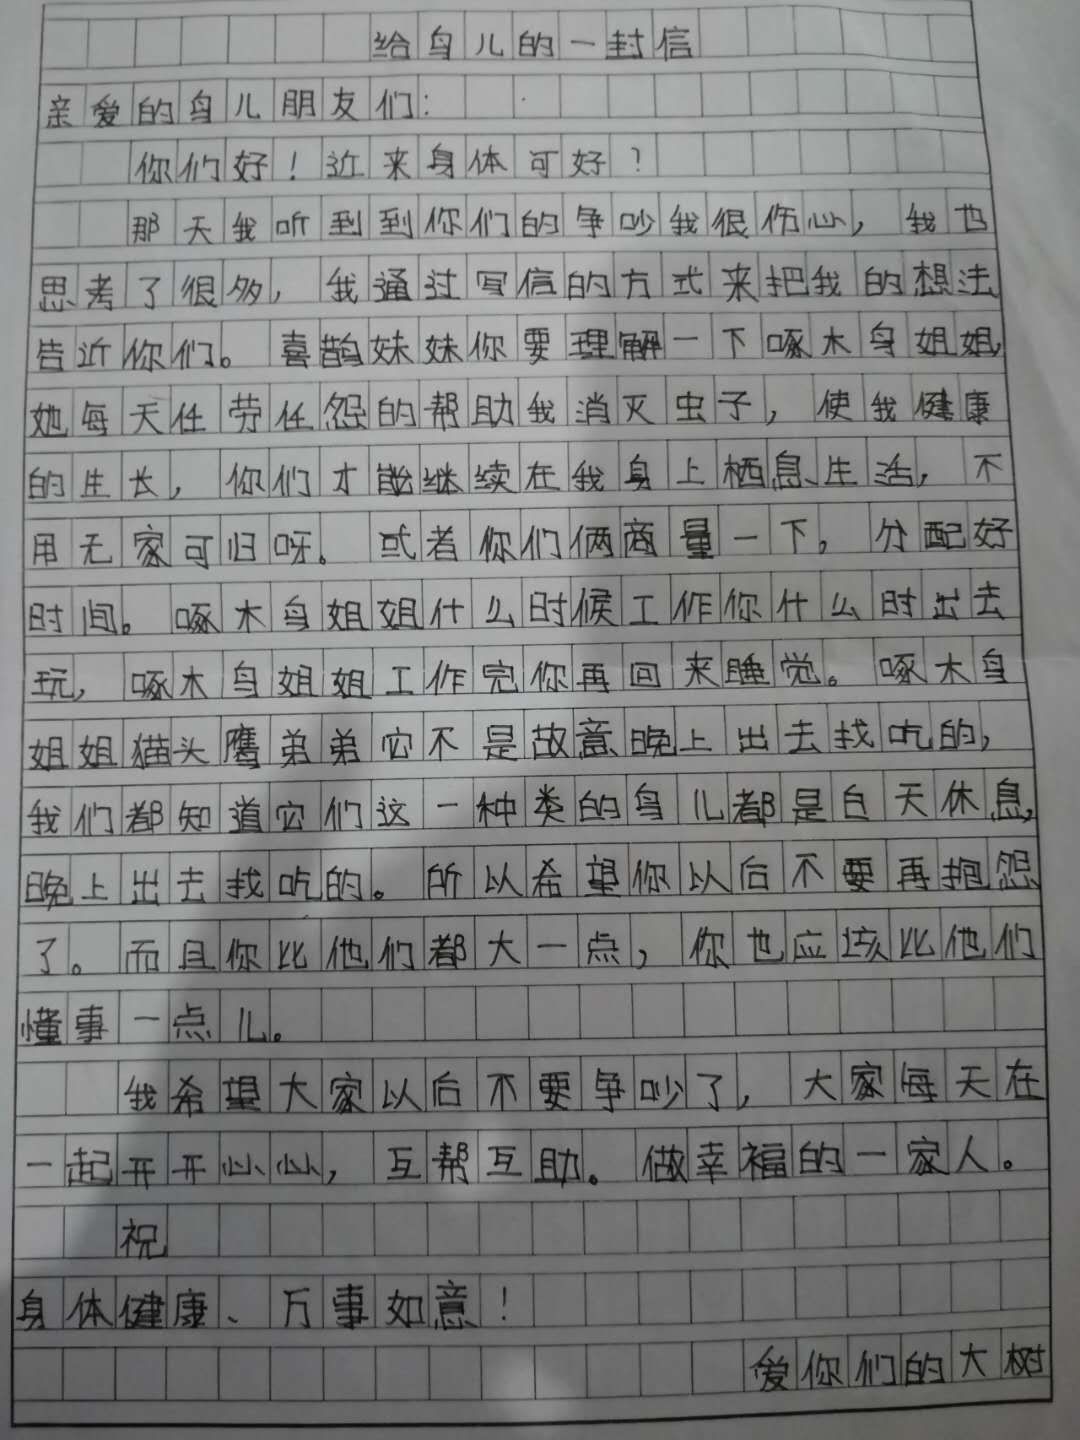 给鸟儿的一封信
亲爱的鸟儿朋友们：
你们好！近来身体可好？
那天我听到到你们的争吵我很伤心，我也
思考了很多，我通过写信的方式来把我的想法
告近你们。喜鹊妹妹你要理解一下啄木鸟姐姐，
她每天任劳任怨的帮助我消灭虫子，使我健康
的生长，你们才能继续在我身上栖息、生活，不
用无家可归呀。或者你们俩商量一下，分配好
时间。啄木鸟姐姐什么时候工作你什么时出去
玩，啄木鸟姐姐工作完你再回来睡觉。啄木鸟
姐姐猫头鹰弟弟它不是故意晚上出去找吃的，
我们都知道它们这一种类的鸟儿都是白天休息，
晚上出去找吃的。所以希望你以后不要再抱怨
了。而且你比他们都大一点，你也应该比他们
懂事一点儿。
我希望大家以后不要争吵了，大家每天在
一起开开心心，互帮互助。做幸福的一家人。
祝
身体健康、万事如意！
爱你们的大树